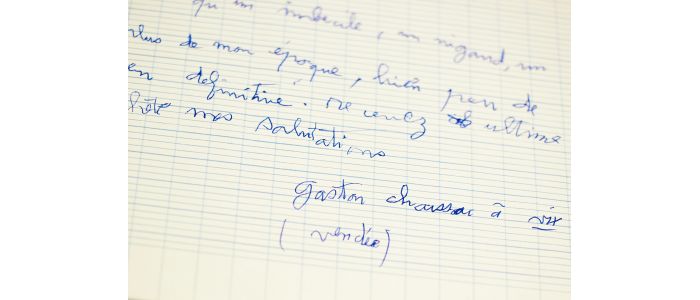 qu'un imbécile, un nigaud, un
lus de mon époque, bien peu de
en définitive. recevez ultime
mes salutations
gaston chaissac à vix
(vendée)